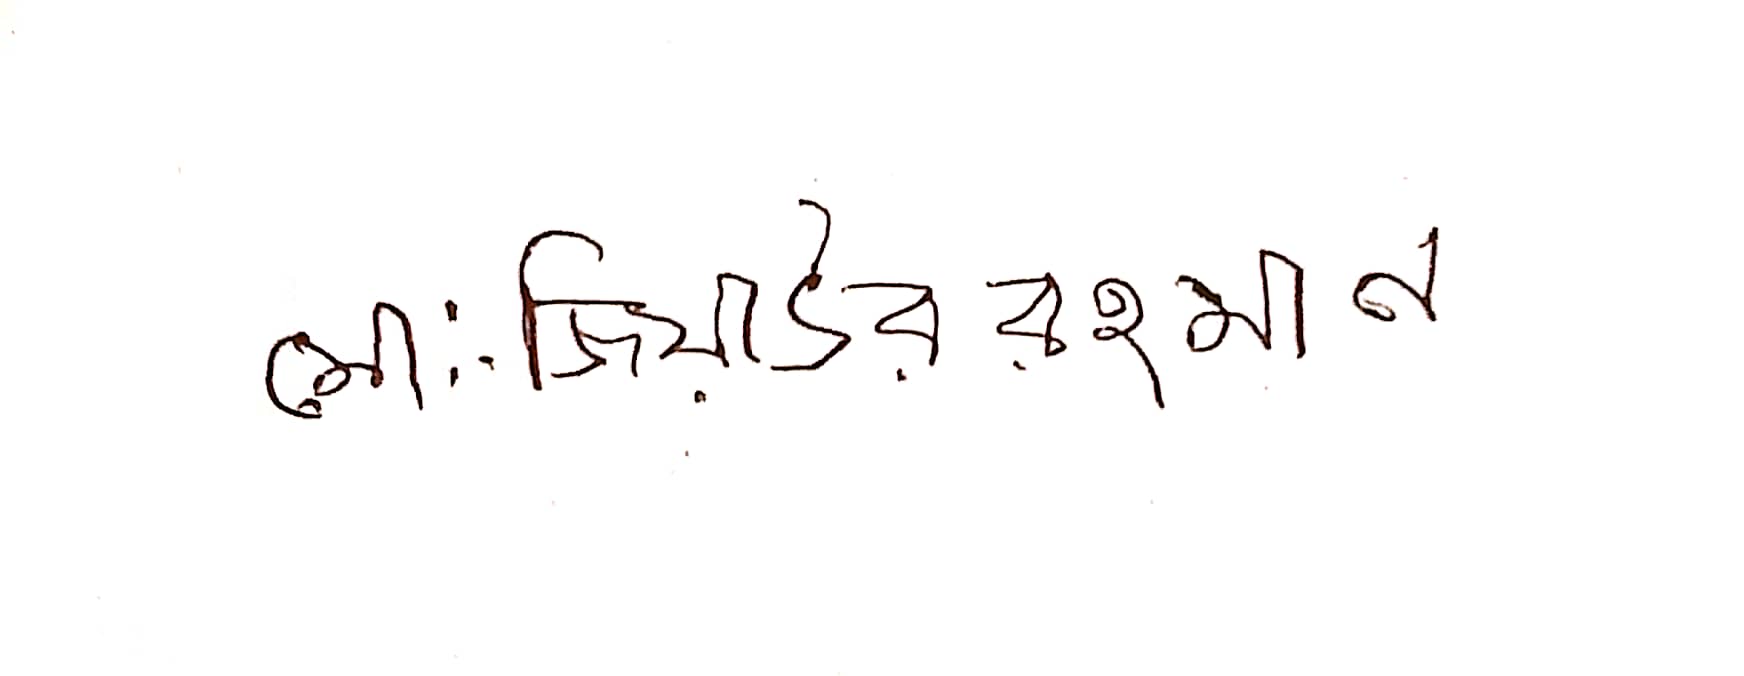 মোঃ জিয়াউর রহমান